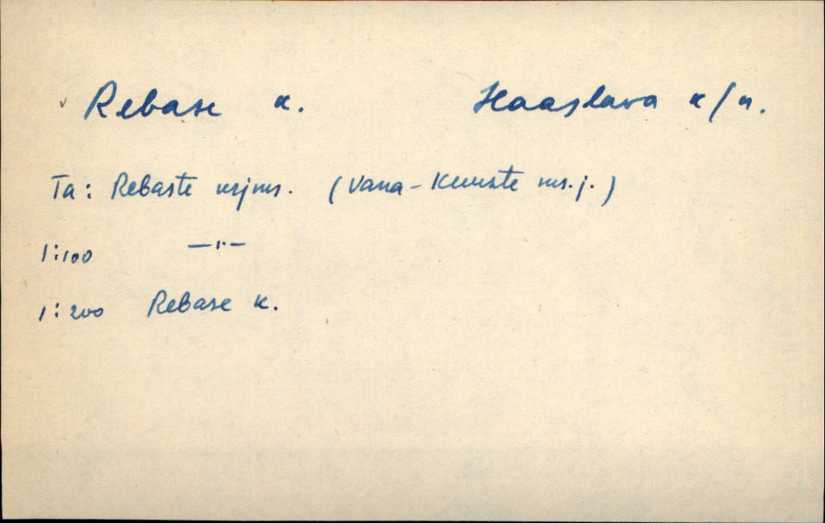 ✓ Rebase k. Haaslava k/n.
Ta: Rebaste krjms. (Vana-Kuuste ms.j.)
1:100 —"—
1:200 Rebase k.